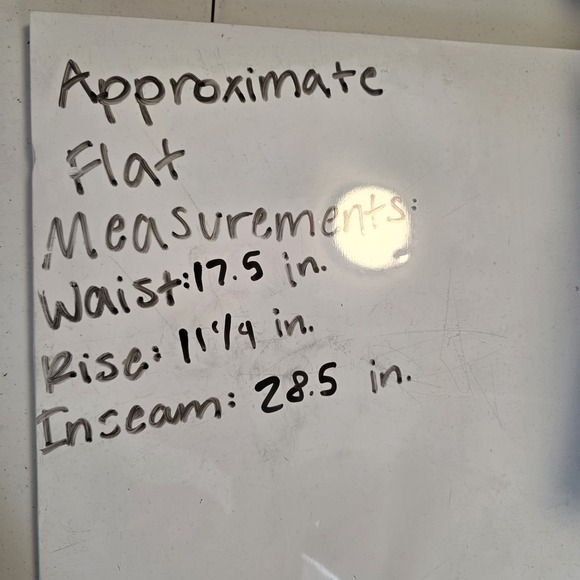 Approximate
Flat
Measurements:
Waist: 17.5 in.
Rise: 11 1/4 in.
Inseam: 28.5 in.